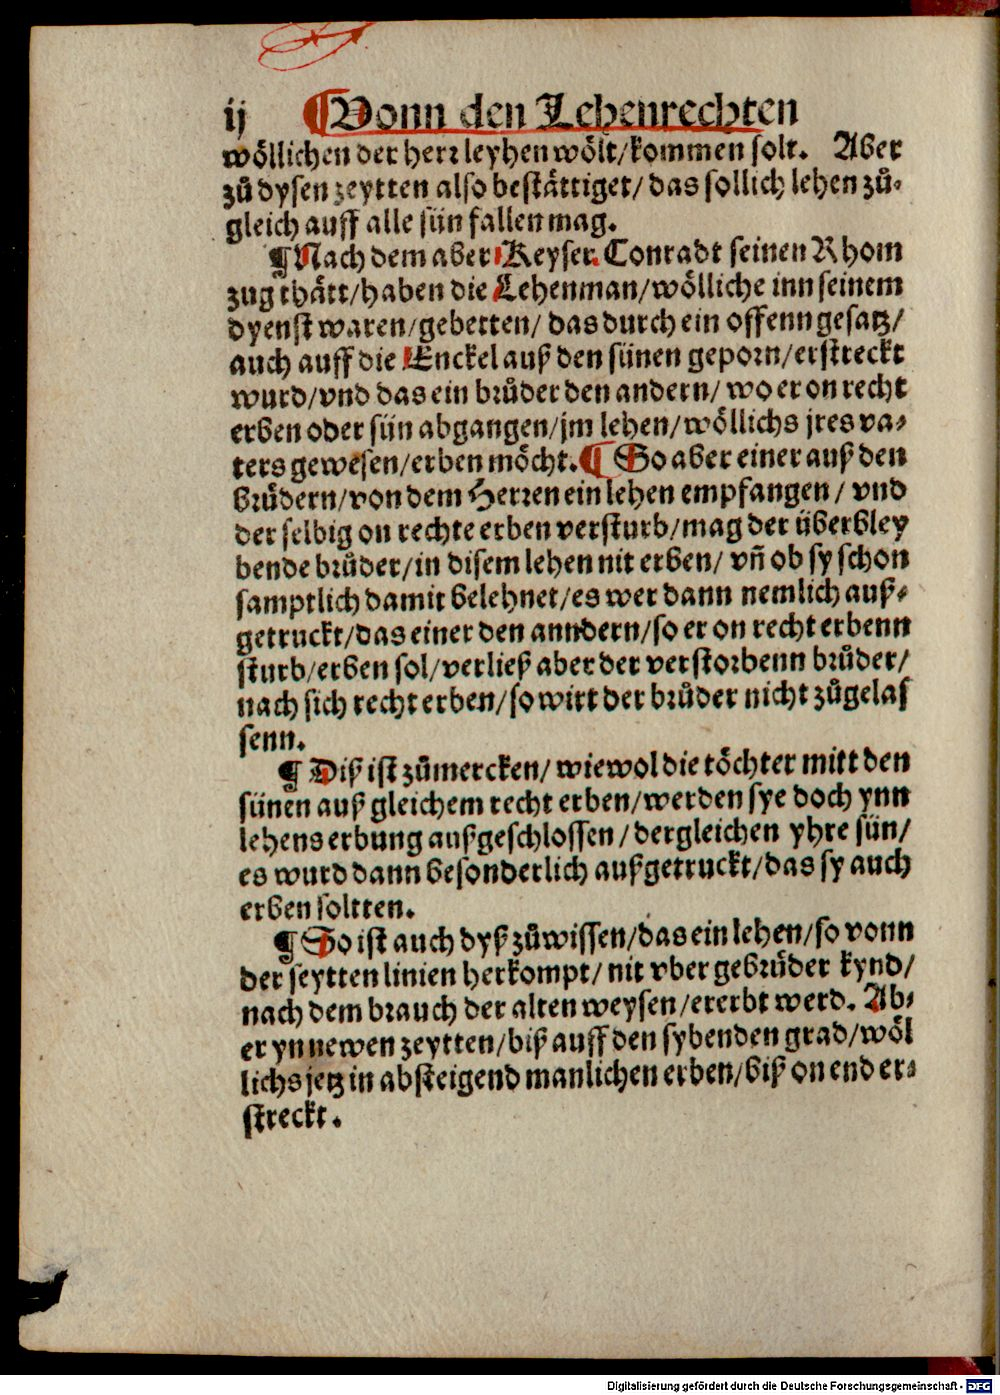 ij ¶Vonn den Lehenrechten
wöllichen der herr leyhen wölt/kommen solt. Aber
zů dysen zeytten also bestättiget/das sollich lehen zů-
gleich auff alle sün fallen mag.
¶Nach dem aber Keyser Conradt seinen Rhom
zug thätt/haben die Lehenman/wölliche inn seinem
dyenst waren/gebetten/das durch ein offenn gesatz/
auch auff die Enckel auß den sünen geporn/erstreckt
wurd/vnd das ein brůder den andern/wo er on recht
erben oder sün abgangen/jm lehen/wöllichs jres va-
ters gewesen/erben möcht.¶ So aber einer auß den
brůdern/von dem Herren ein lehen empfangen/vnd
der selbig on rechte erben versturb/mag der überbley
bende brůder/in disem lehen nit erben/vñ ob sy schon
samptlich damit belehnet/es wer dann nemlich auß-
getruckt/das einer den anndern/so er on recht erbenn
sturb/erben sol/verließ aber der verstorbenn brůder/
nach sich recht erben/so wirt der brůder nicht zůgelas
senn.
¶ Diß ist zůmercken/wiewol die töchter mitt den
sünen auß gleichem recht erben/werden sye doch ynn
lehens erbung außgeschlossen/dergleichen yhre sün/
es wurd dann besonderlich außgetruckt/das sy auch
erben soltten.
¶ So ist auch dyß zůwissen/das ein lehen/so vonn
der seytten linien herkompt/nit vber gebrůder kynd/
nach dem brauch der alten weysen/ererbt werd. Ab-
er yn newen zeytten/biß auff den sybenden grad/wöl
lichs jetz in absteigend manlichen erben/biß on end er-
streckt.
Digitalisierung gefördert durch die Deutsche Forschungsgemeinschaft - DFG